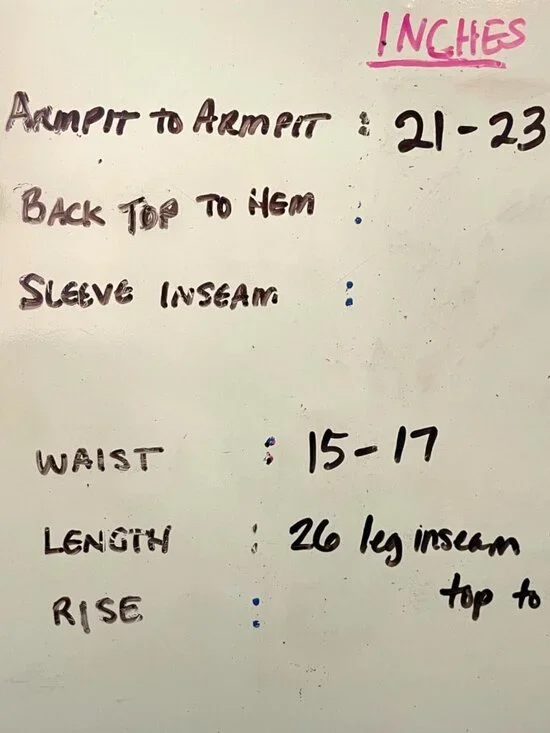 INCHES
ARMPIT TO ARMPIT : 21-23
BACK TOP TO HEM :
SLEEVE INSEAM :
WAIST : 15-17
LENGTH : 26 leg inseam
RISE : top to